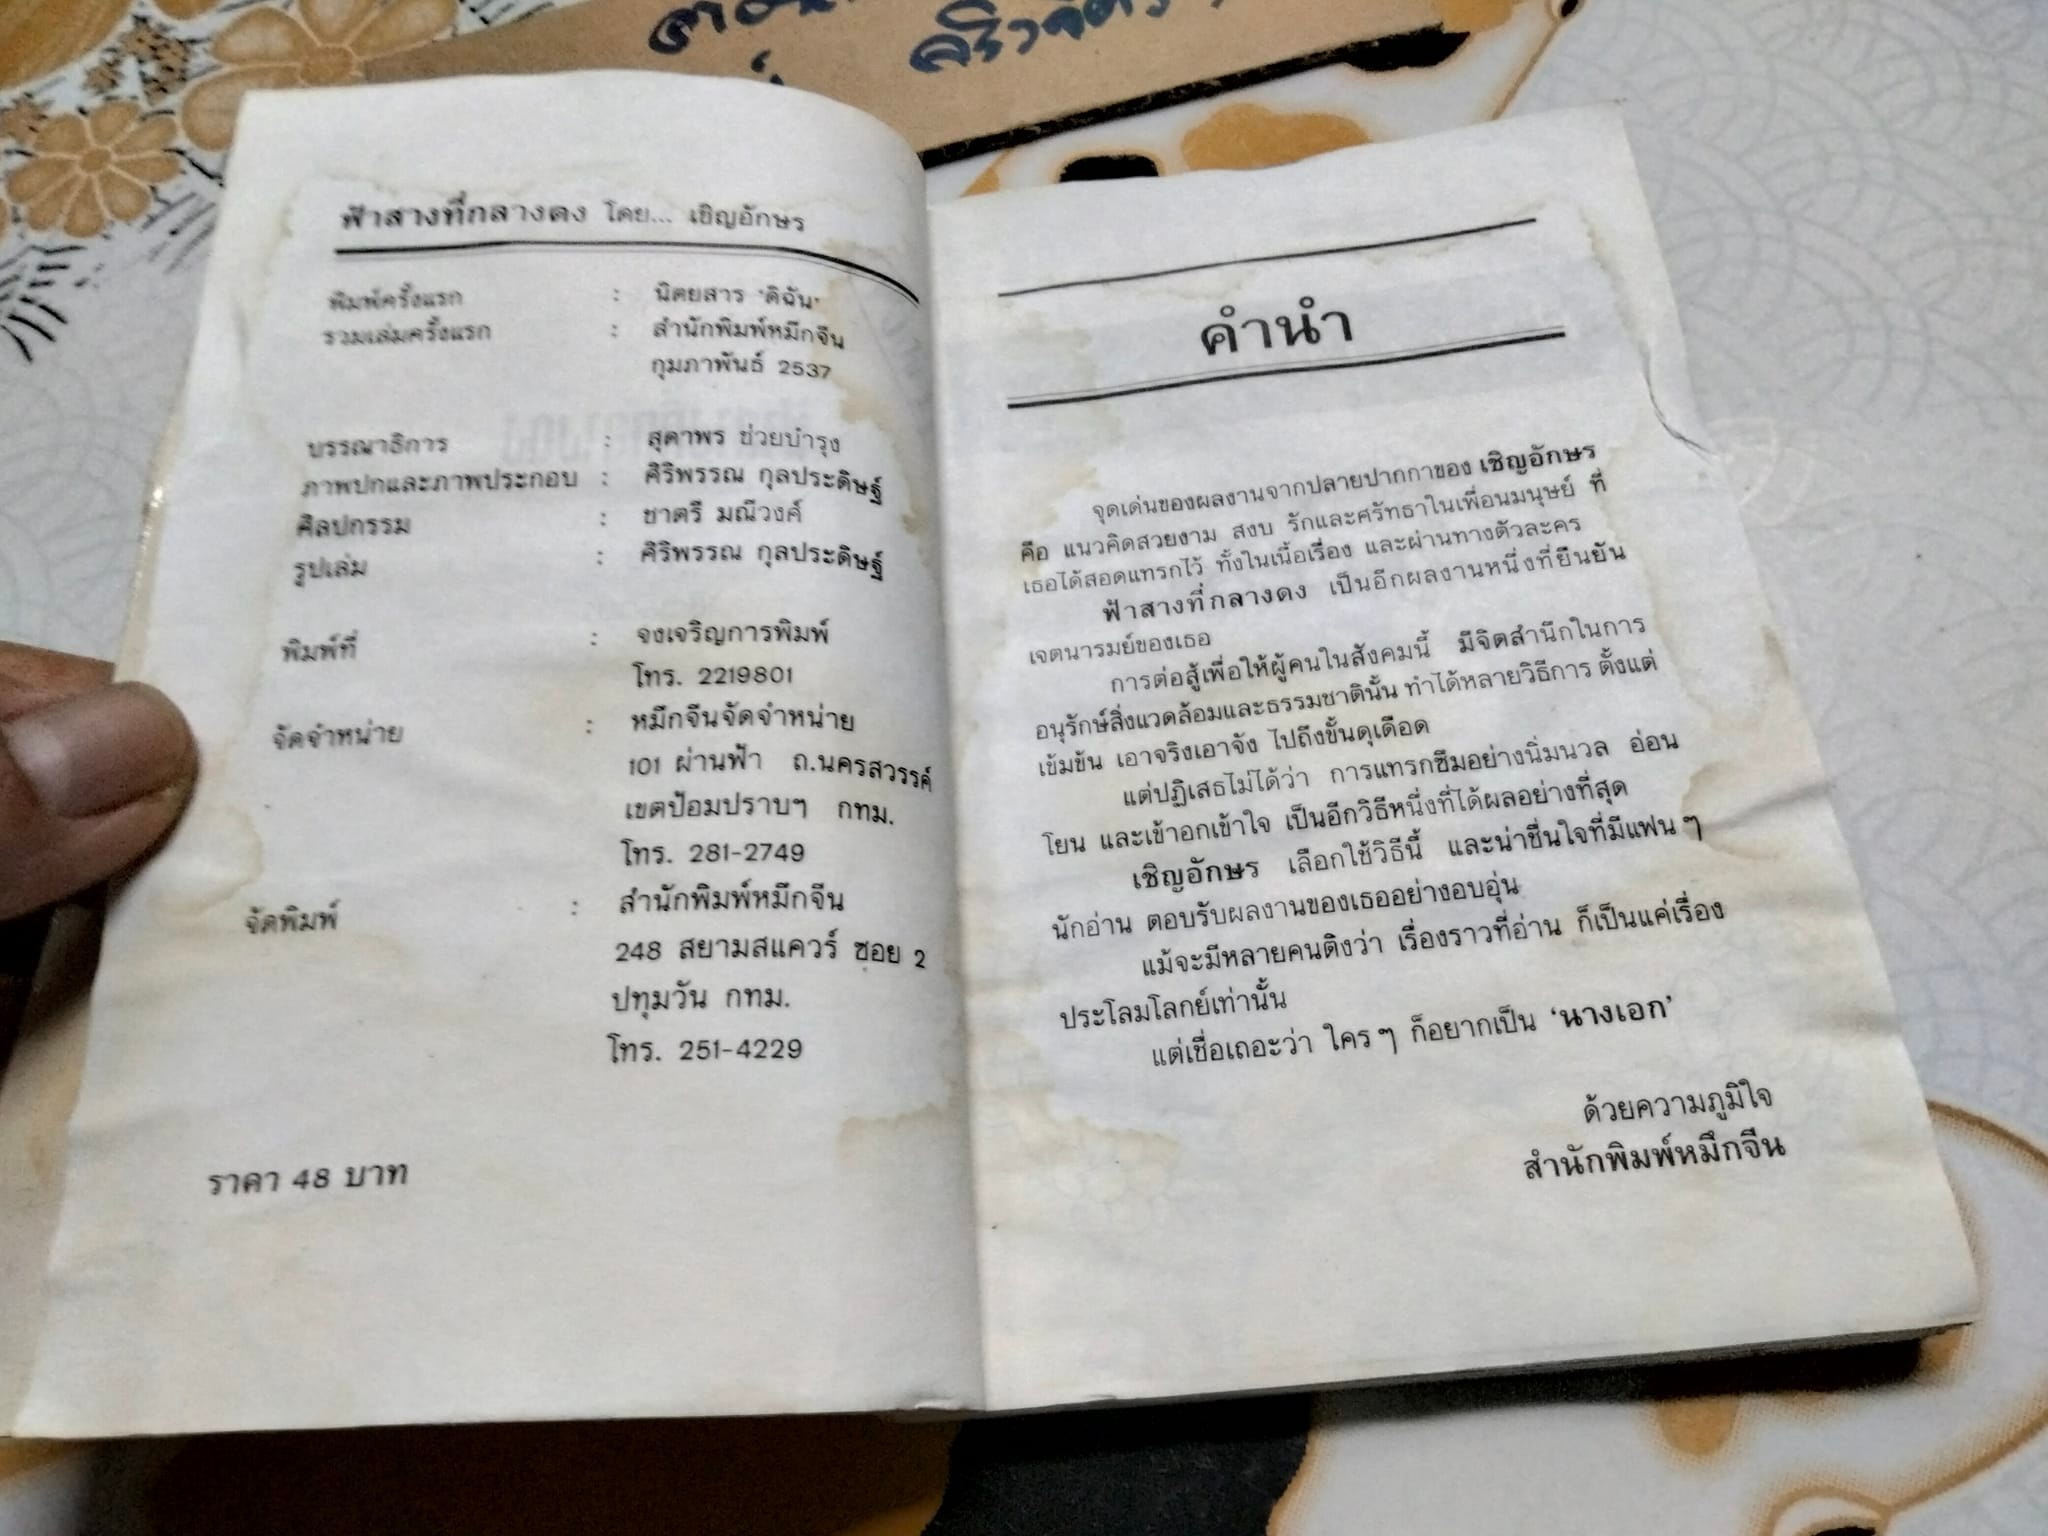 ฟ้าสางที่กลางดง โดย... เชิญอักษร
พิมพ์ครั้งแรก : นิตยสาร 'ดิฉัน'
รวมเล่มครั้งแรก : สำนักพิมพ์หมึกจีน
กุมภาพันธ์ 2537
บรรณาธิการ : สุดาพร ช่วยบำรุง
ภาพปกและภาพประกอบ : ศิริพรรณ กุลประดิษฐ์
ศิลปกรรม : ชาตรี มณีวงศ์
รูปเล่ม : ศิริพรรณ กุลประดิษฐ์
พิมพ์ที่ : จงเจริญการพิมพ์
โทร. 2219801
จัดจำหน่าย : หมึกจีนจัดจำหน่าย
101 ผ่านฟ้า ถ.นครสวรรค์
เขตป้อมปราบฯ กทม.
โทร. 281-2749
จัดพิมพ์ : สำนักพิมพ์หมึกจีน
248 สยามสแควร์ ซอย 2
ปทุมวัน กทม.
โทร. 251-4229
ราคา 48 บาท
คำนำ
จุดเด่นของผลงานจากปลายปากกาของ เชิญอักษร
คือ แนวคิดสวยงาม สงบ รักและศรัทธาในเพื่อนมนุษย์ ที่
เธอได้สอดแทรกไว้ ทั้งในเนื้อเรื่อง และผ่านทางตัวละคร
ฟ้าสางที่กลางดง เป็นอีกผลงานหนึ่งที่ยืนยัน
เจตนารมย์ของเธอ
การต่อสู้เพื่อให้ผู้คนในสังคมนี้ มีจิตสำนึกในการ
อนุรักษ์สิ่งแวดล้อมและธรรมชาตินั้น ทำได้หลายวิธีการ ตั้งแต่
เข้มข้น เอาจริงเอาจัง ไปถึงขั้นดุเดือด
แต่ปฏิเสธไม่ได้ว่า การแทรกซึมอย่างนิ่มนวล อ่อน
โยน และเข้าอกเข้าใจ เป็นอีกวิธีหนึ่งที่ได้ผลอย่างที่สุด
เชิญอักษร เลือกใช้วิธีนี้ และน่าชื่นใจที่มีแฟน ๆ
นักอ่าน ตอบรับผลงานของเธออย่างอบอุ่น
แม้จะมีหลายคนติงว่า เรื่องราวที่อ่าน ก็เป็นแค่เรื่อง
ประโลมโลกย์เท่านั้น
แต่เชื่อเถอะว่า ใคร ๆ ก็อยากเป็น 'นางเอก'
ด้วยความภูมิใจ
สำนักพิมพ์หมึกจีน